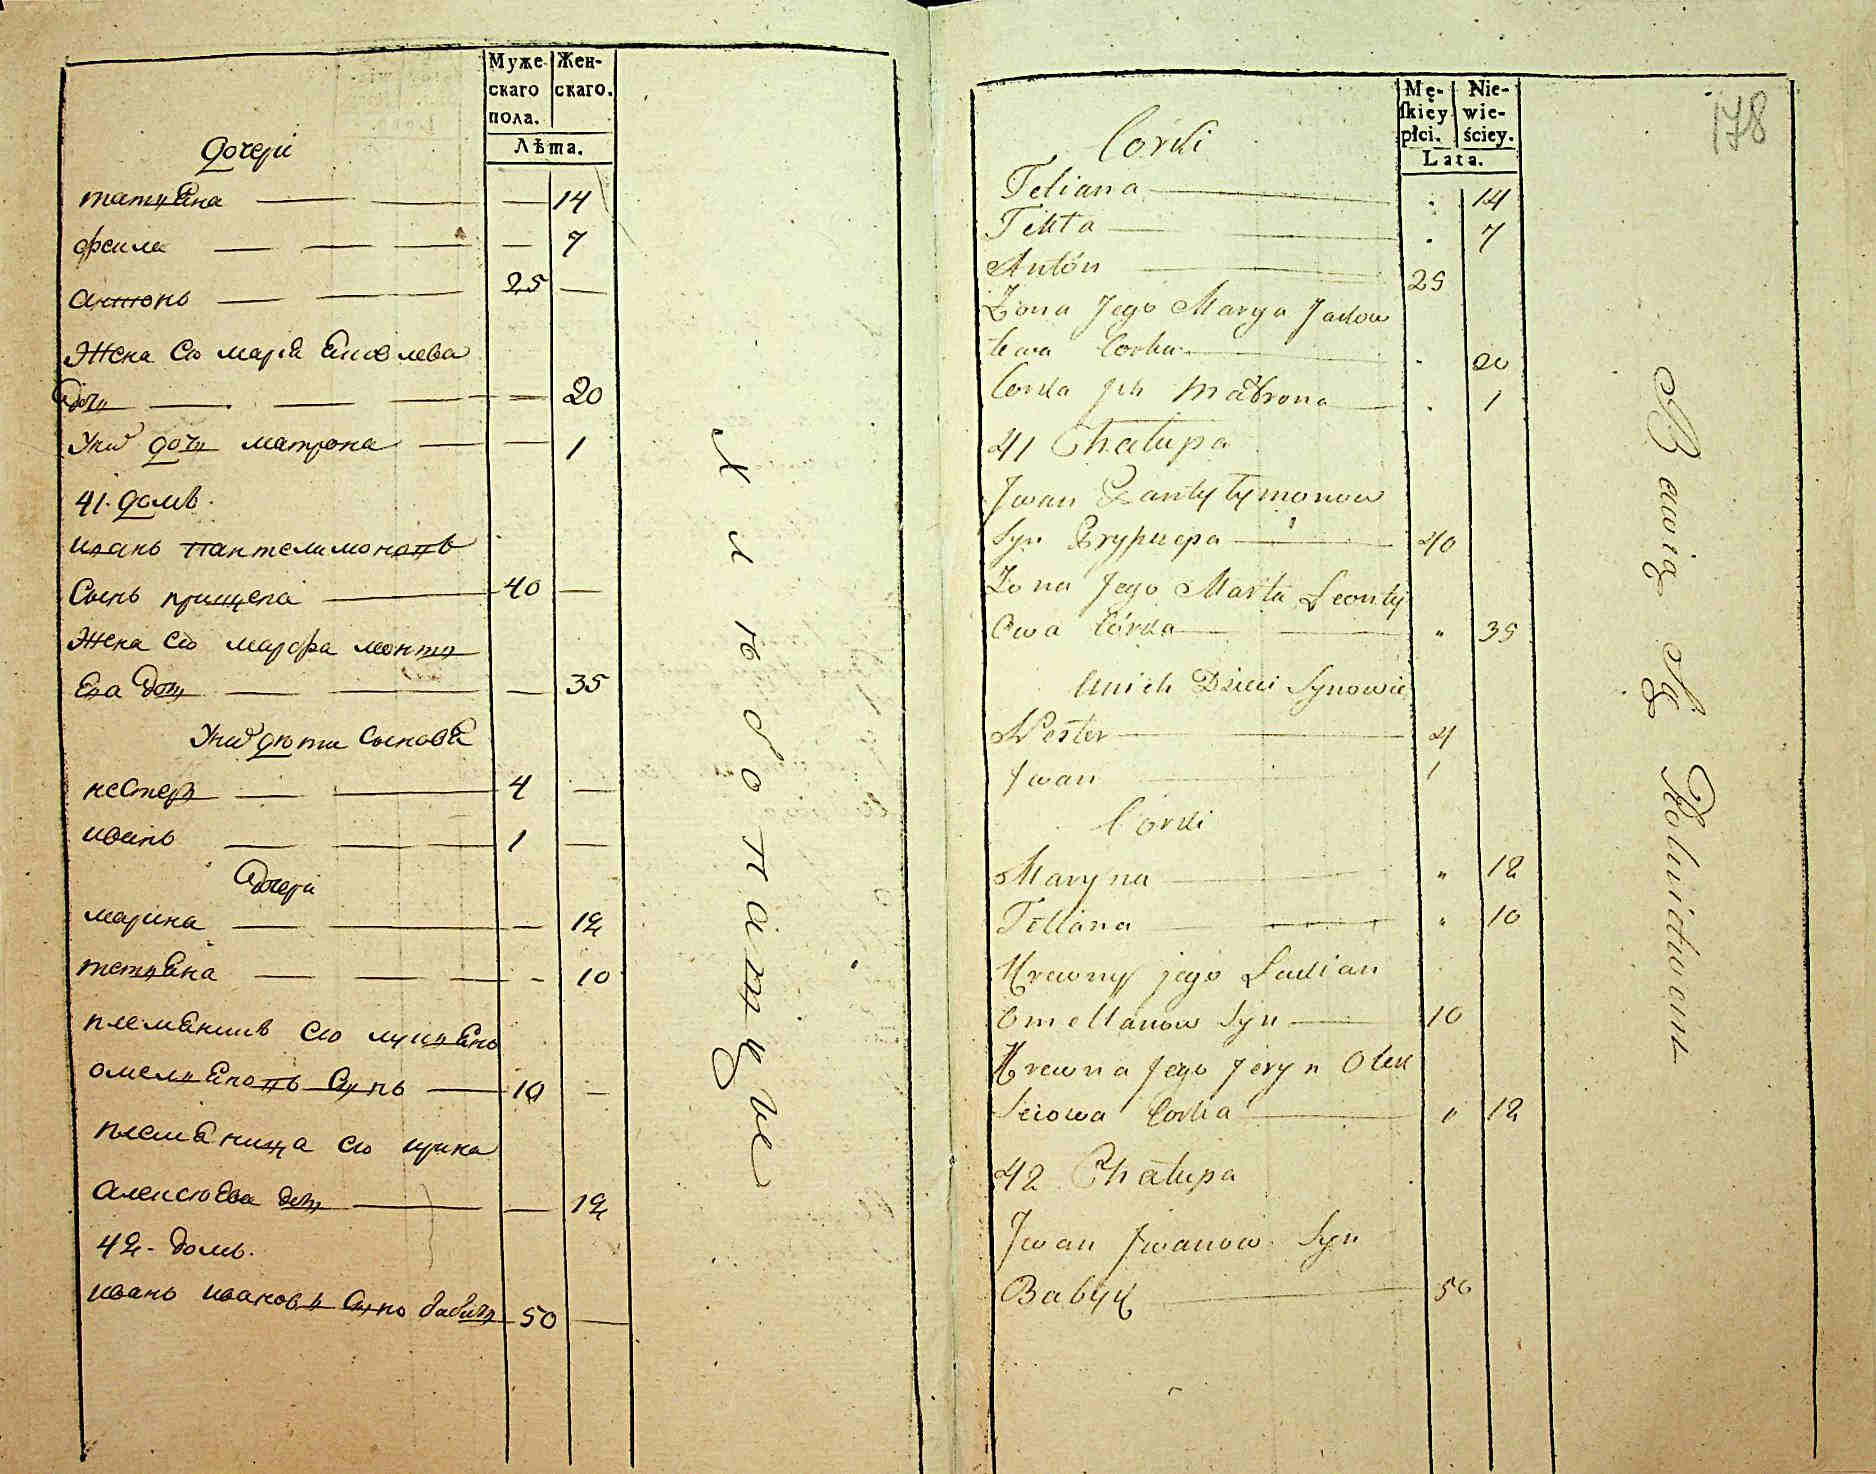 Муже
скаго
пола.
Жен-
скаго.
Лѣта.
дочери
татияна — — — 14
феила — — — — 7
антонъ — — 25 —
Жена его марїа яковлева
дочь — — — — 20
у них дочь матрона — — 1
41. домъ.
иванъ пантелимоновъ
Сынъ прищепа — 40 —
Жена его марфа леонти
ева дочь — — — 35
у них дѣти сыновя
нестеръ — — 4 —
иванъ — — — 1 —
дочери
марина — — — 12
татияна — — — — 10
племяникъ его лукиянъ
омелияновъ Сынъ — 10 —
племяница его ирина
алексѣева дочь — — 12
42. домъ.
иванъ ивановъ Сынъ бабичъ 50 —
хлѣбопашцые
Mę-
ſkiey
płci.
Nie-
wie-
ściey.
Lata.
178
Corki
Tetiana — . 14
Tekta — . 7
Antón — 25
Żona Jego Marya Jackow
lewa Corka — . 20
Corka Jch Matrona — . 1
41 Chałupa
Jwan Pantyłymonow
Syn Pryszczepa — 40
Żona Jego Marta Leonty
Owa Córka — " 35
Unich Dzieci Synowie
Nester — 4
Jwan — 1
Corki
Maryna — " 12
Tetiana — " 10
Krewny jego Lukian
Omelianow Syn — 10
Krewna Jego Jeryn Olek
Seiowa Corka — " 12
42 Chałupa
Jwan Jwanow Syn
Babycz — 50
Bawią Się Rolnictwem